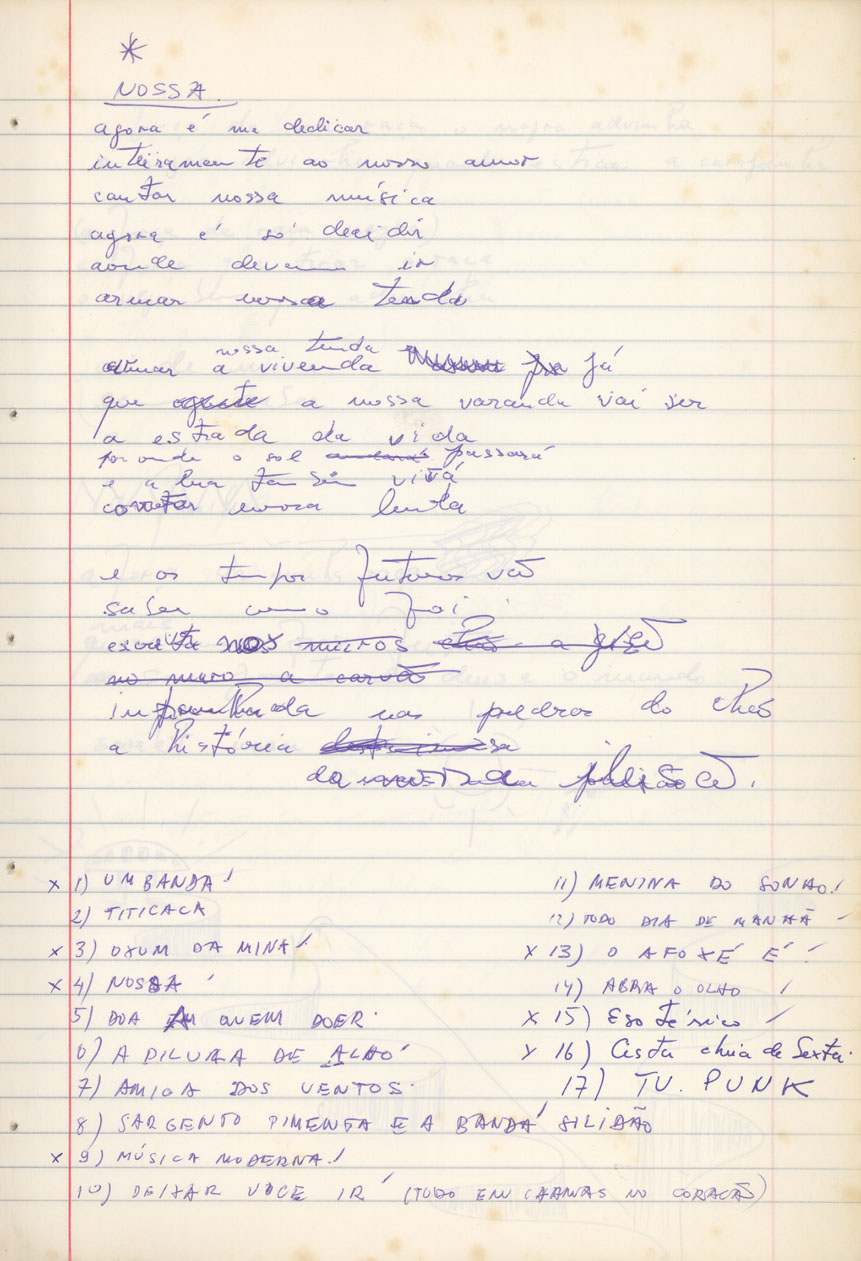 *
NOSSA.
agora é me dedicar
inteiramente ao nosso amor
cantar nossa música
agora é só decidir
aonde devemos ir
armar nossa tenda
nossa tenda
armar a vivenda já
que a nossa varanda vai ser
a estrada da vida
por onde o sol passará
e a lua também virá
contar nossa lenda
e os tempos futuros vão
saber como foi
escrita nos muros a
no muro a carvão
nas pedras do chão
a história
da
x 1) UMBANDA!
2) TITICACA
x 3) OXUM DA MINA!
x 4) NOSSA
5) DOA A QUEM DOER
6) A DILURA DE ALHO
7) AMIGA DOS VENTOS
8) SARGENTO PIMENTA E A BANDA SILIDÃO
x 9) MÚSICA MODERNA!
10) DEIXAR VOCE IR (TUDO EM CHAMAS NO CORAÇÃO)
11) MENINA DO SONHO!
12) TODO DIA DE MANHÃ
x 13) O AFOXÉ É!
14) ABRA O OLHO
x 15) Esotérico
x 16) Cesta cheia de Sexta.
17) TV. PUNK